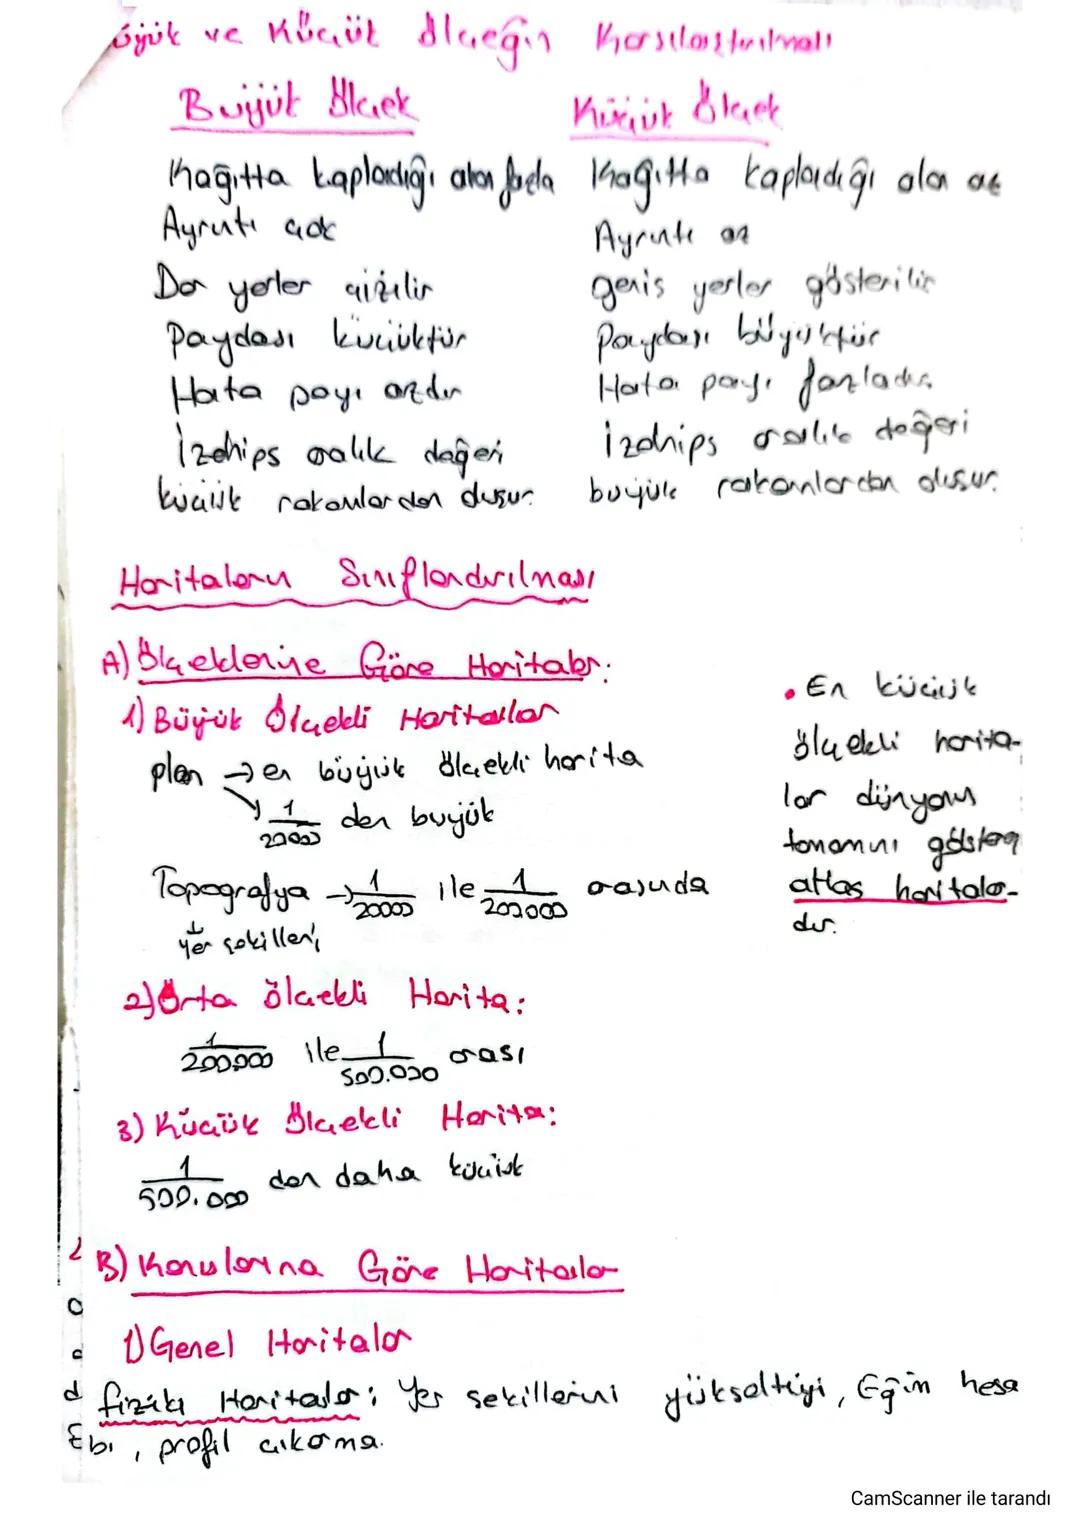 Büyük ve Küçük Ölçeğin Karşılaştırılması
Büyük Ölçek
Küçük Ölçek
Kağıtta kapladığı alan fazla
Kağıtta kapladığı alan az
Ayrıntı çok
Ayrıntı az
Dar yerler çizilir
geniş yerler gösterilir
Paydası küçüktür
Paydası büyüktür
Hata payı azdır
Hata payı fazladır.
İzohips aralık değeri
İzohips aralık değeri
küçük rakamlardan oluşur.
büyük rakamlardan oluşur.
Haritaların Sınıflandırılması
A) Ölçeklerine Göre Haritalar:
1) Büyük Ölçekli Haritalar
plan → en büyük ölçekli harita
↘ 1/20000 den büyük
Topografya → 1/20000 ile 1/200000 arasında
↓
yer şekilleri
• En küçük
ölçekli harita-
lar dünyanın
tamamını gösteren
atlas haritala-
dır.
2) Orta ölçekli Harita:
1/200.000 ile 1/500.000 arası
3) Küçük Ölçekli Harita:
1/500.000 den daha küçük
B) Konularına Göre Haritalar
1) Genel Haritalar
fiziki Haritalar: Yer şekillerini yükseltiyi, Eğim hesa
bı, profil çıkarma.
CamScanner ile tarandı